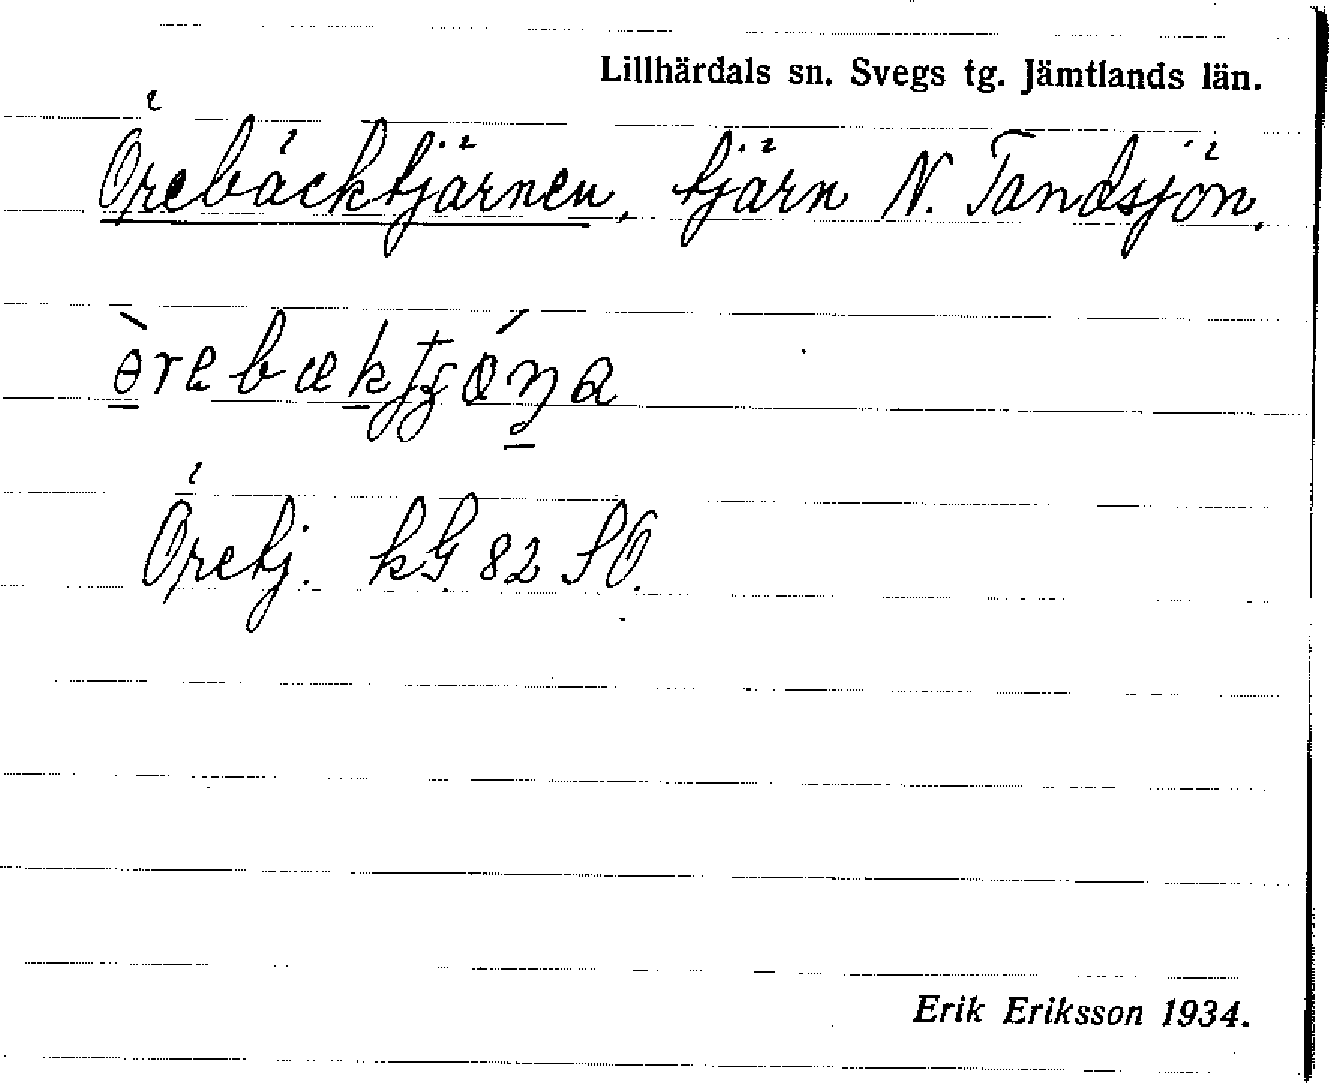 Lillhärdals sn. Svegs tg. Jämtlands län.
Örebäcktjärnen, tjärn N. Tandsjön.
Öretj. kG 82 SO.
Erik Eriksson 1934.